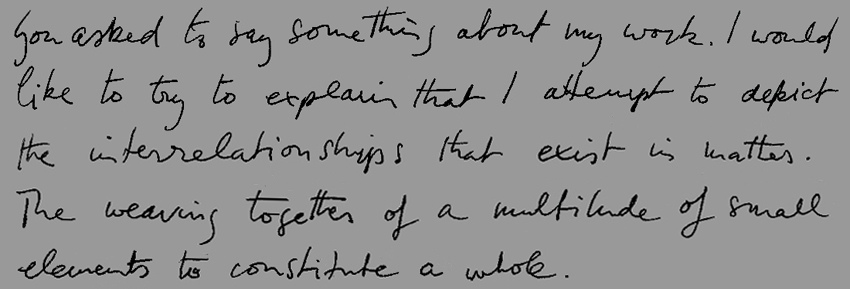 You asked to say something about my work. I would
like to try to explain that I attempt to depict
the interrelationships that exist in matter.
The weaving together of a multitude of small
elements to constitute a whole.